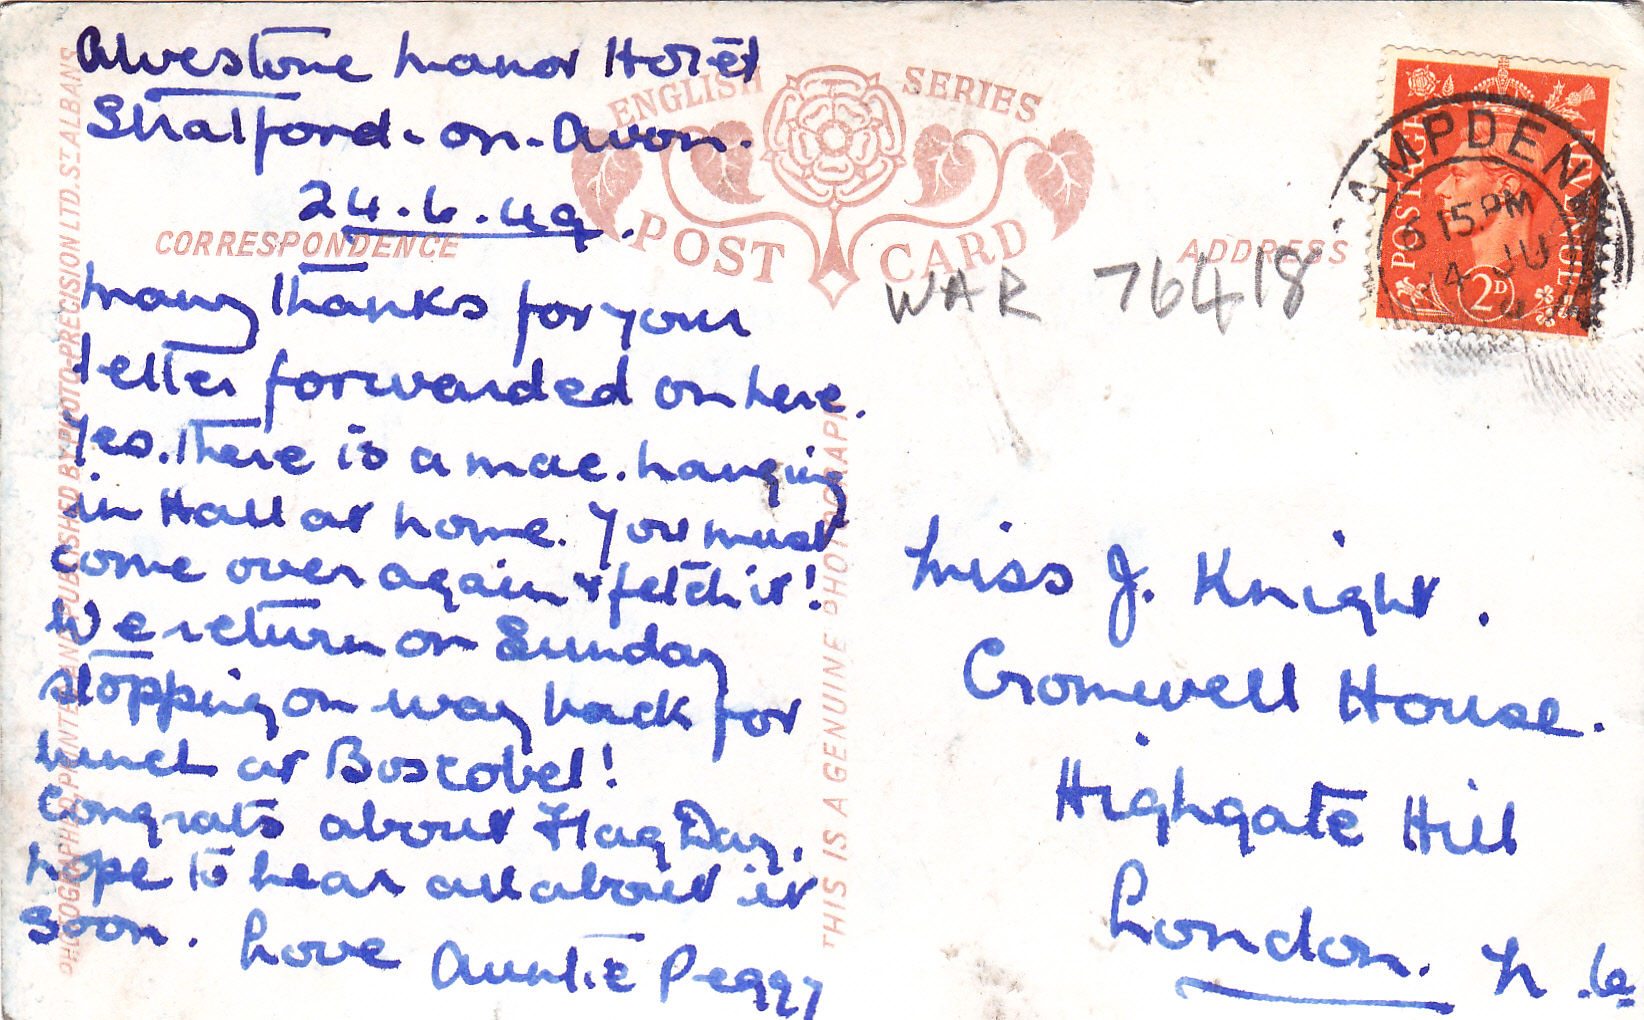 Alvestone Manor Hotel
Stratford-on-Avon.
24.6.49.
Many thanks for your
letter forwarded on here.
Yes. There is a mac. hanging
in Hall at home. You must
come over again & fetch it!
We return on Sunday
stopping on way back for
lunch at Boscobel!
Congrats about Flag Day.
hope to hear all about it
soon. Love Auntie Peggy
ENGLISH SERIES
POST CARD
CORRESPONDENCE
ADDRESS
WAR 76418
Miss J. Knight.
Cromwell House.
Highgate Hill
London. N.6.
POSTAGE REVENUE
2D
AMPDEN
6 15 PM
JU
PHOTOGRAPHED, PRINTED AND PUBLISHED BY PHOTO-PRECISION LTD. ST. ALBANS
THIS IS A GENUINE PHOTOGRAPH